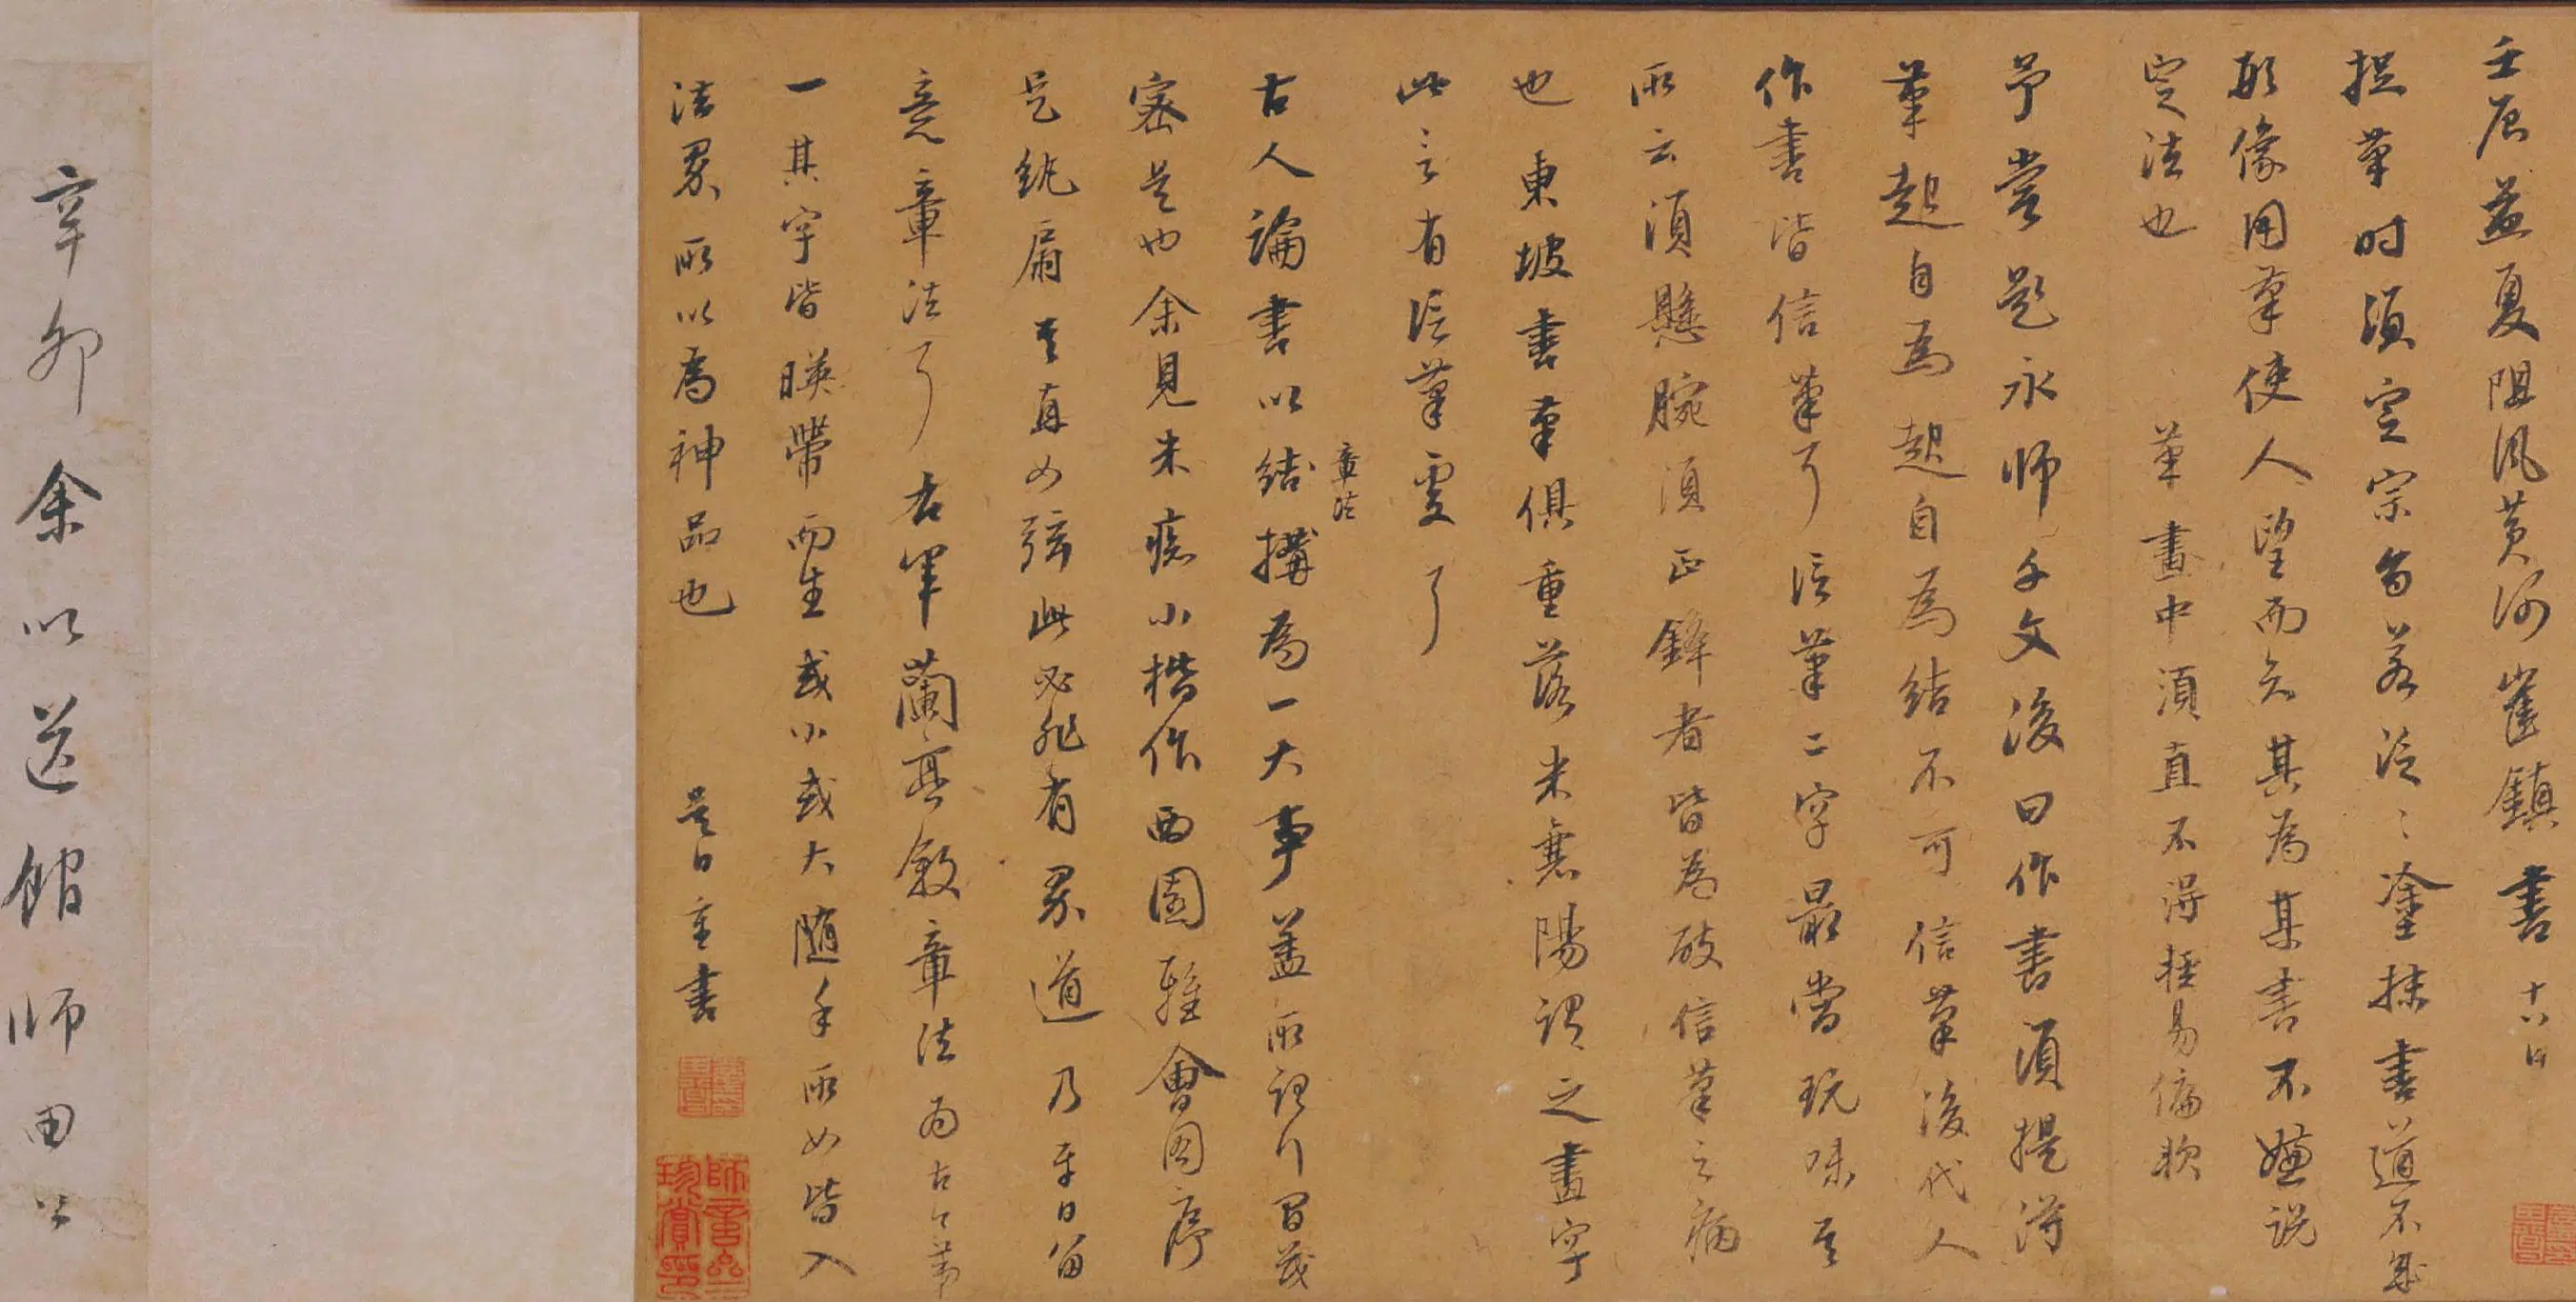 壬辰益夏阻风黄河崔鎮書 十六日
捉筆时須定宗旨若泛泛塗抹書道不成
形像用筆使人望而知其為某書不嫌說
定法也　筆畫中須直不得輕易偏軟
予嘗題永师千文後曰作書須提得
筆起自為起自為結不可信筆後代人
作書皆信筆了信筆二字最當玩味吾
所云須懸腕須正鋒者皆為破信筆之病
也東坡書筆俱重落米襄陽謂之畫字
此言有信筆處了
古人論書以章法結搆為一大事蓋所謂行間茂
密是也余見米癡小楷作西園雅會图序
是紈扇其直如弦此必非有界道乃平日留
意章法了右軍蘭亭叙章法為古今第
一其字皆暎帶而生或小或大随手所如皆入
法界所以為神品也　是日重書
師言公珍賞印
辛卯余以送館师田公